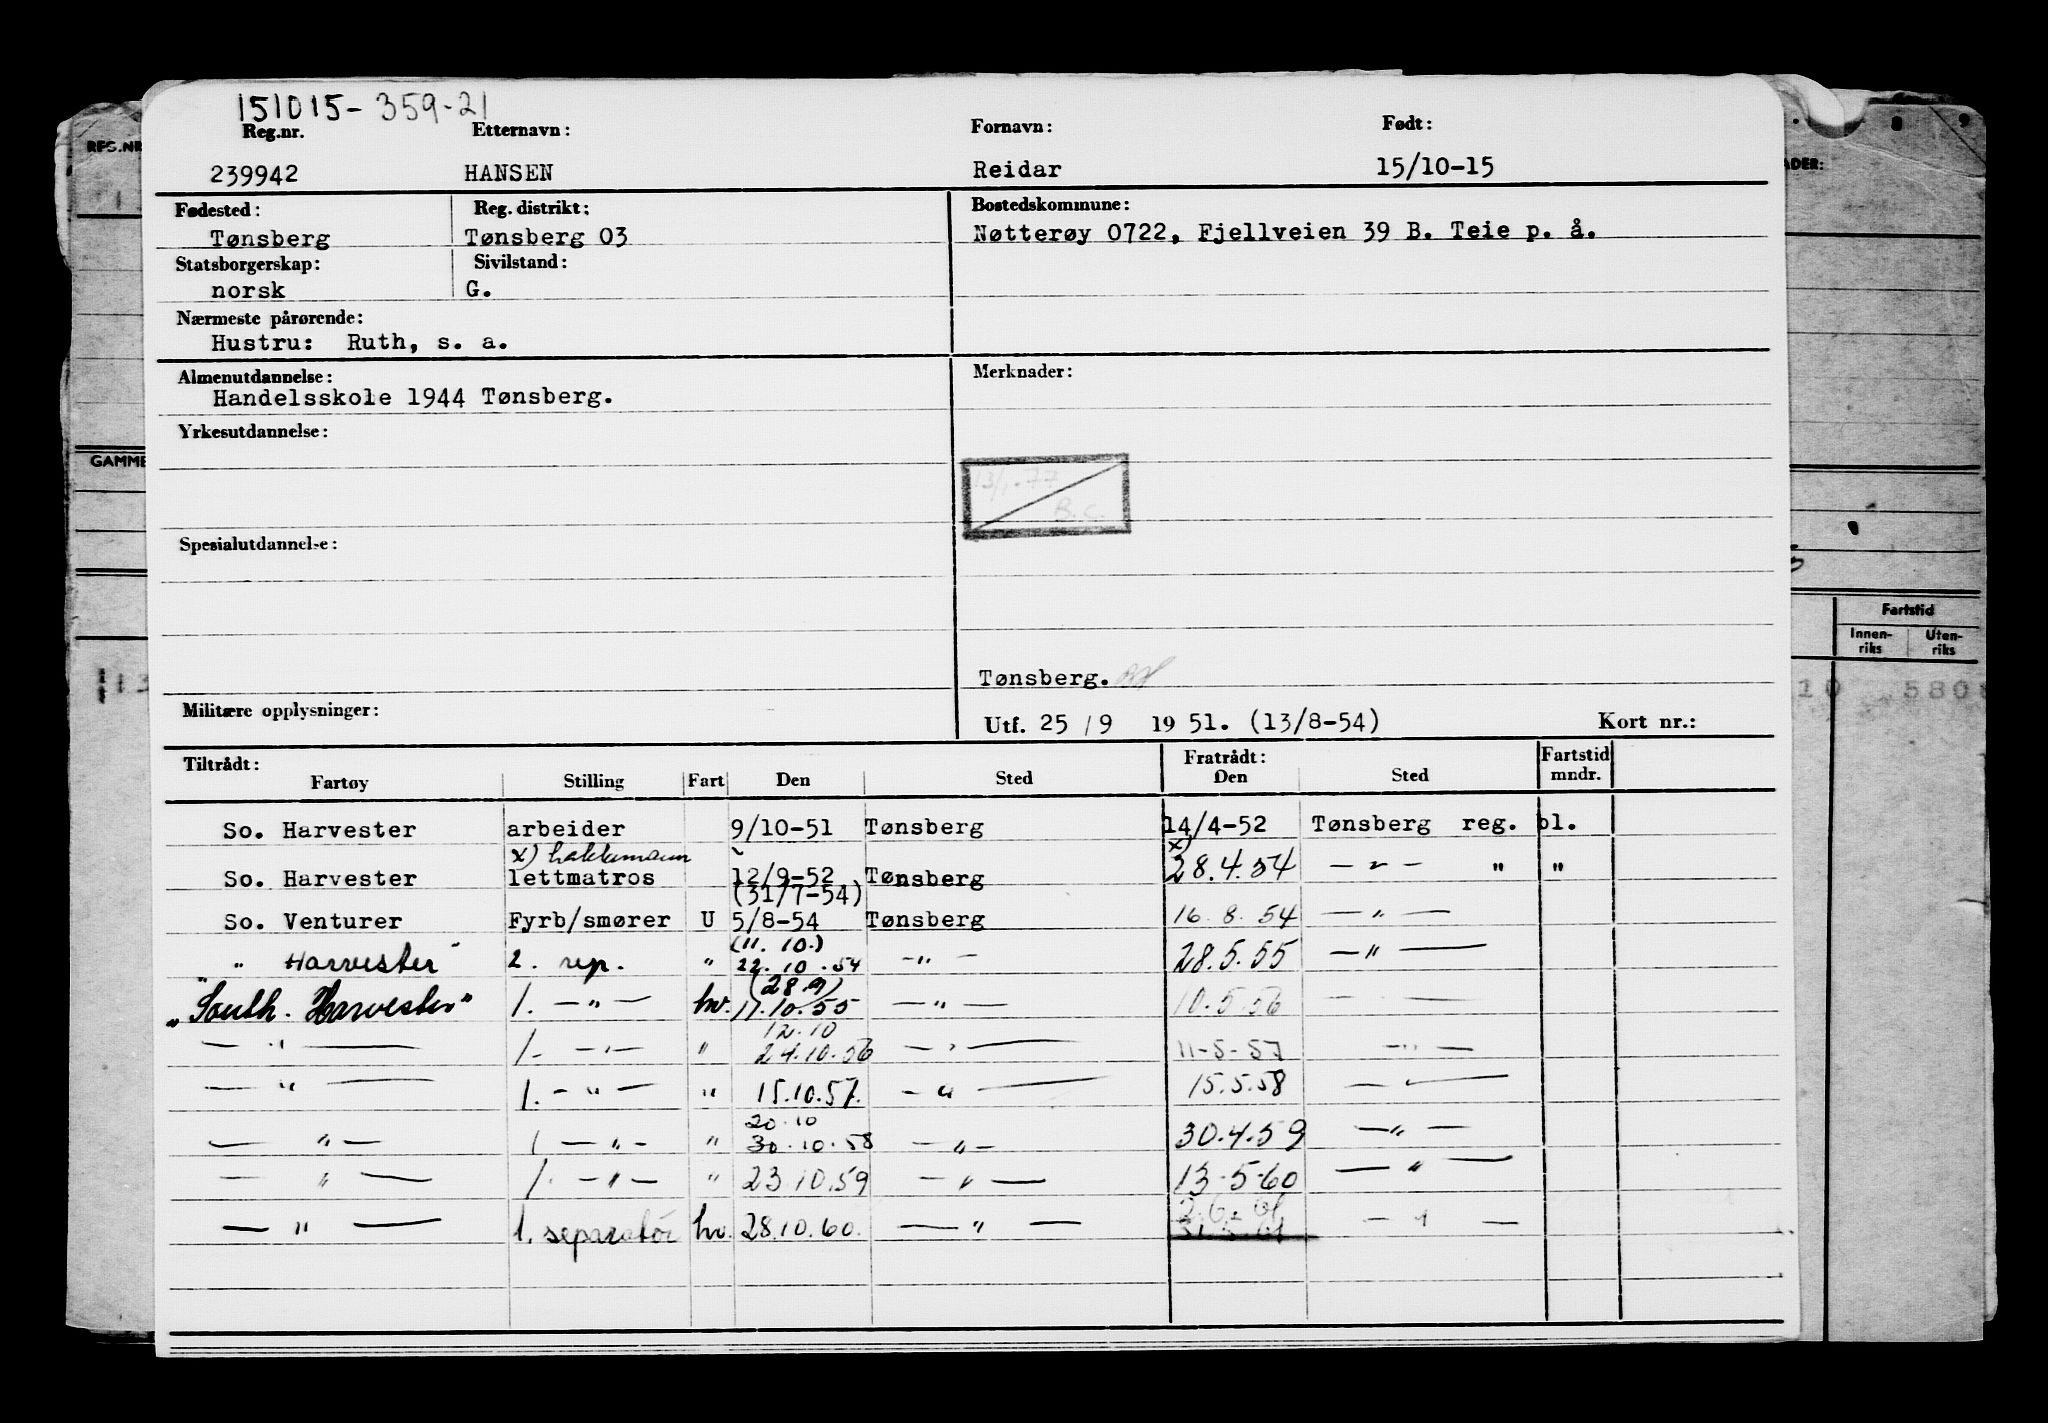 151015-359-21
Reg.nr. Etternavn: Fornavn: Født:
239942 HANSEN Reidar 15/10-15
Fødested: Reg. distrikt: Bostedskommune:
Tønsberg Tønsberg 03 Nøtterøy 0722, Fjellveien 39 B. Teie p. å.
Statsborgerskap: Sivilstand:
norsk G.
Nærmeste pårørende:
Hustru: Ruth, s. a.
Almenutdannelse: Merknader:
Handelsskole 1944 Tønsberg.
Yrkesutdannelse:
13/1-77
B.C.
Spesialutdannelse:
Tønsberg.
Militære opplysninger:
Utf. 25/9 1951. (13/8-54) Kort nr.:
Tiltrådt: Fratrådt: Fartstid
Fartøy Stilling Fart Den Sted Den Sted mndr.
So. Harvester arbeider 9/10-51 Tønsberg 14/4-52 Tønsberg reg. bl.
x) hakkemann x)
So. Harvester lettmatros 12/9-52 Tønsberg 28.4.54 — " — " "
(31/7-54)
So. Venturer Fyrb/smører U 5/8-54 Tønsberg 16.8.54 — " —
(11.10.)
" Harvester 2. rep. " 22.10.54 — " — 28.5.55 — " —
(28.9)
"South. Harvester" 1. — " — hv. 11.10.55 — " — 10.5.56 — " —
12.10
— " — 1. — " — " 24.10.56 — " — 11-5-57 — " —
— " — 1. — " — " 15.10.57. — " — 15.5.58 — " —
20.10
— " — 1 — " — " 30.10.58 — " — 30.4.59 — " —
— " — 1. — " — " 23.10.59 — " — 13-5-60 — " —
2.6.61
— " — 1. separatør hv. 28.10.60. — " — 31.5.61 — " —
RFS.NR
GAMME
ADER:
8 9
Fartstid
Innen-riks Uten-riks
10 580